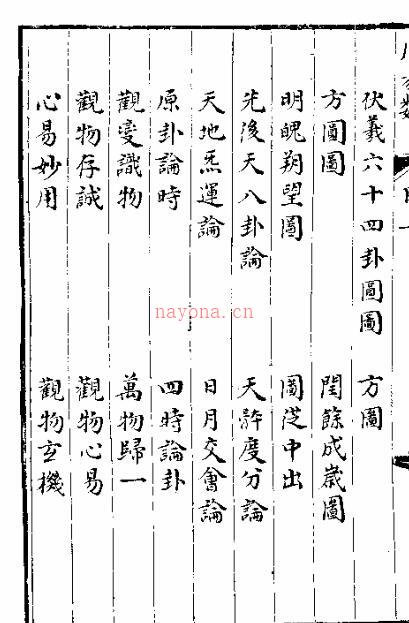 伏羲六十四卦圓圖　方圖
方圓圖　閏餘成歲圖
明魄朔望圖　圖從中出
先後天八卦論　天度分論
天地炁運論　日月交會論
原卦論時　四時論卦
觀變識物　萬物歸一
觀物存誠　觀物心易
心易妙用　觀物玄機
nayona.cn